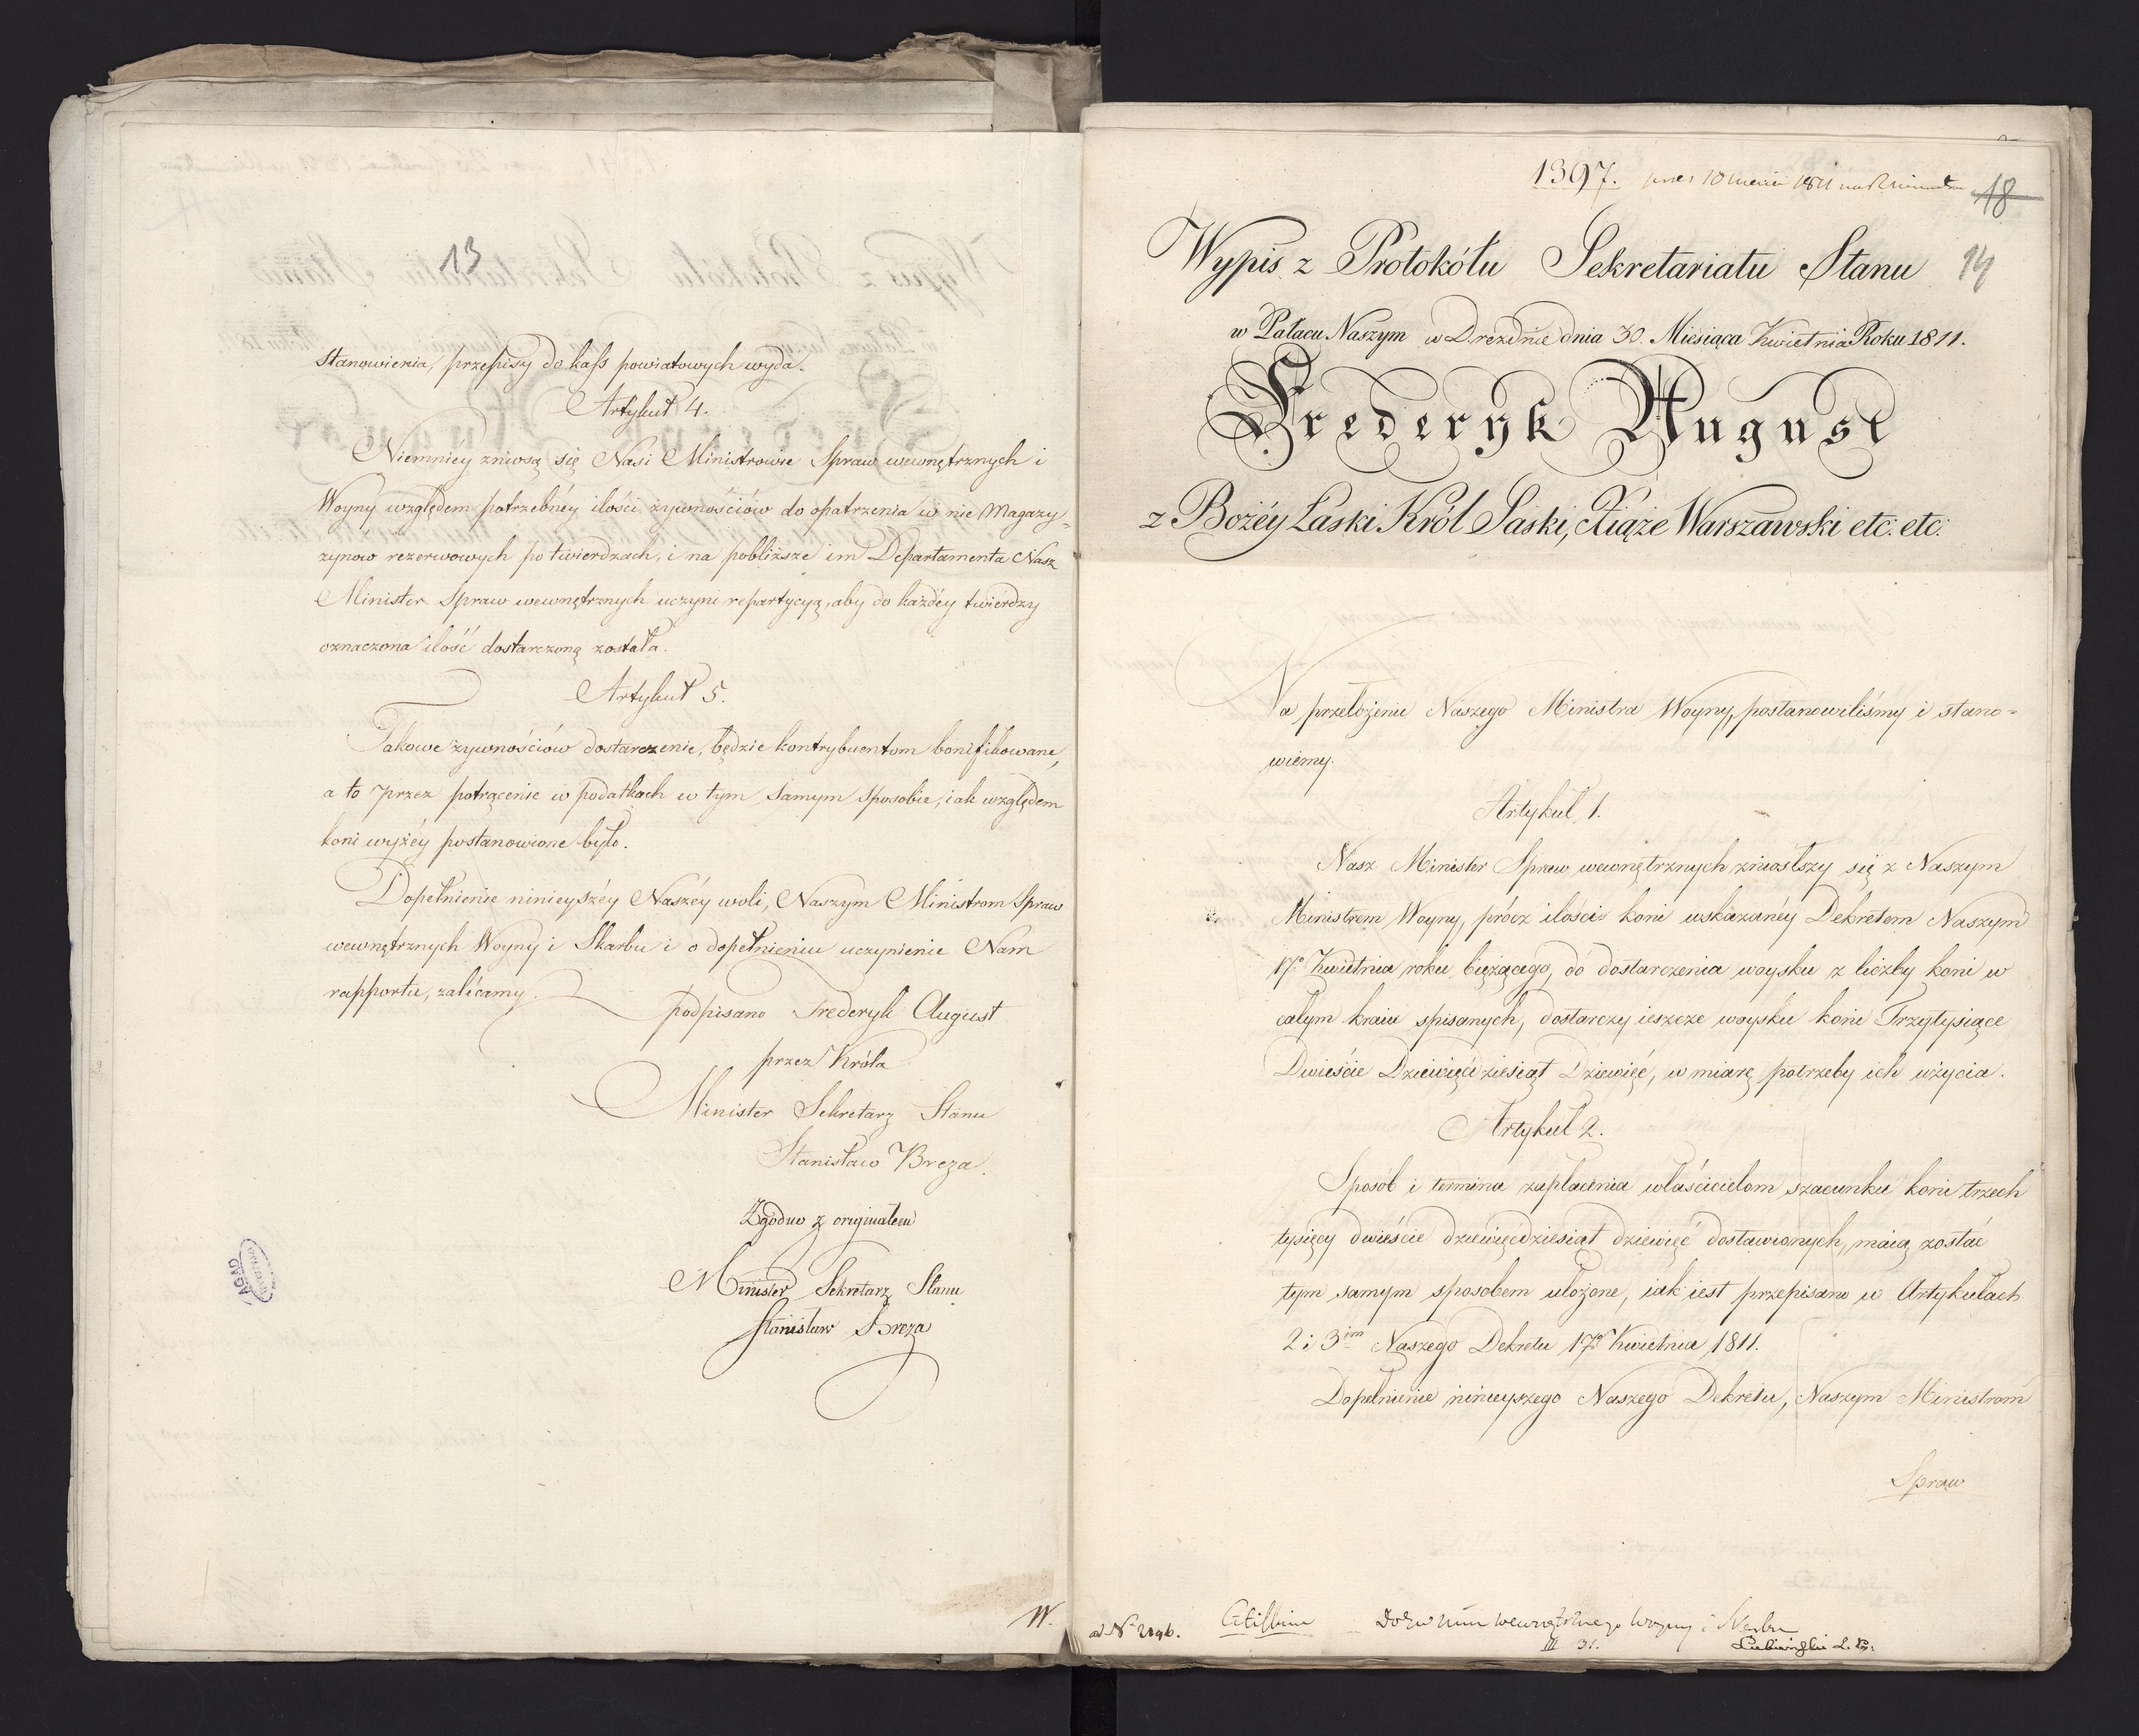 13
stanowienia, przepisy do kass powiatowych wyda.
Artykuł 4.
Niemniey zniosą się Nasi Ministrowie Spraw wewnętrznych i
Woyny względem potrzebnéy ilości żywnościów do opatrzenia w nie Magazy=
zynów rezerwowych po twierdzach, i na pobliższe im Departamenta Nasz
Minister Spraw wewnętrznych uczyni repartycyą, aby do każdéy twierdzy
oznaczona ilość dostarczoną została.
Artykuł 5.
Takowe żywnościów dostarczenie, będzie kontrybuentom bonifikowane,
a to przez potrącenie w podatkach w tym samym sposobie, iak względem
koni wyżéy postanowione było.
Dopełnienie ninieyszéy Naszéy woli, Naszym Ministrom Spraw
wewnętrznych Woyny i Skarbu i o dopełnieniu uczynienie Nam
rapportu, zalécamy.
podpisano Frederyk August
przez Króla
Minister Sekretarz Stanu
Stanisław Breza.
Zgodno z originałem
Minister Sekretarz Stanu
Stanisław Breza
AGAD
W.
1397.
18
14
Wypis z Protokółu Sekretariatu Stanu
w Pałacu Naszym w Dreznie dnia 30. Miesiąca Kwietnia Roku 1811.
Frederyk August
z Bożéy Łaski Król Saski, Xiąże Warszawski etc: etc:
Na przełożenie Naszego Ministra Woyny, postanowiliśmy i stano=
wiemy.
Artykuł 1.
Nasz Minister Spraw wewnętrznych zniosłszy się z Naszym
Ministrem Woyny, prócz ilości koni wskazanéy Dekretem Naszym
17º Kwietnia roku bieżącego, do dostarczenia woysku z liczby koni w
całym kraiu spisanych, dostarczy ieszcze woysku koni Trzytysiące
Dwieście Dziewięćdziesiąt Dziewięć, w miarę potrzeby ich użycia.
Artykuł 2.
Sposób i termina zapłacenia właścicielom szacunku koni trzech
tysięcy dwieście dziewięćdziesiąt dziewięć dostawionych, maią zostać
tym samym sposobem ułożone, iak iest przepisano w Artykułach
2 i 3im Naszego Dekretu 17º Kwietnia 1811.
Dopełnienie ninieyszego Naszego Dekretu, Naszym Ministrom
Spraw
ad Nº
wewnętrznego Woyny i
III 31.